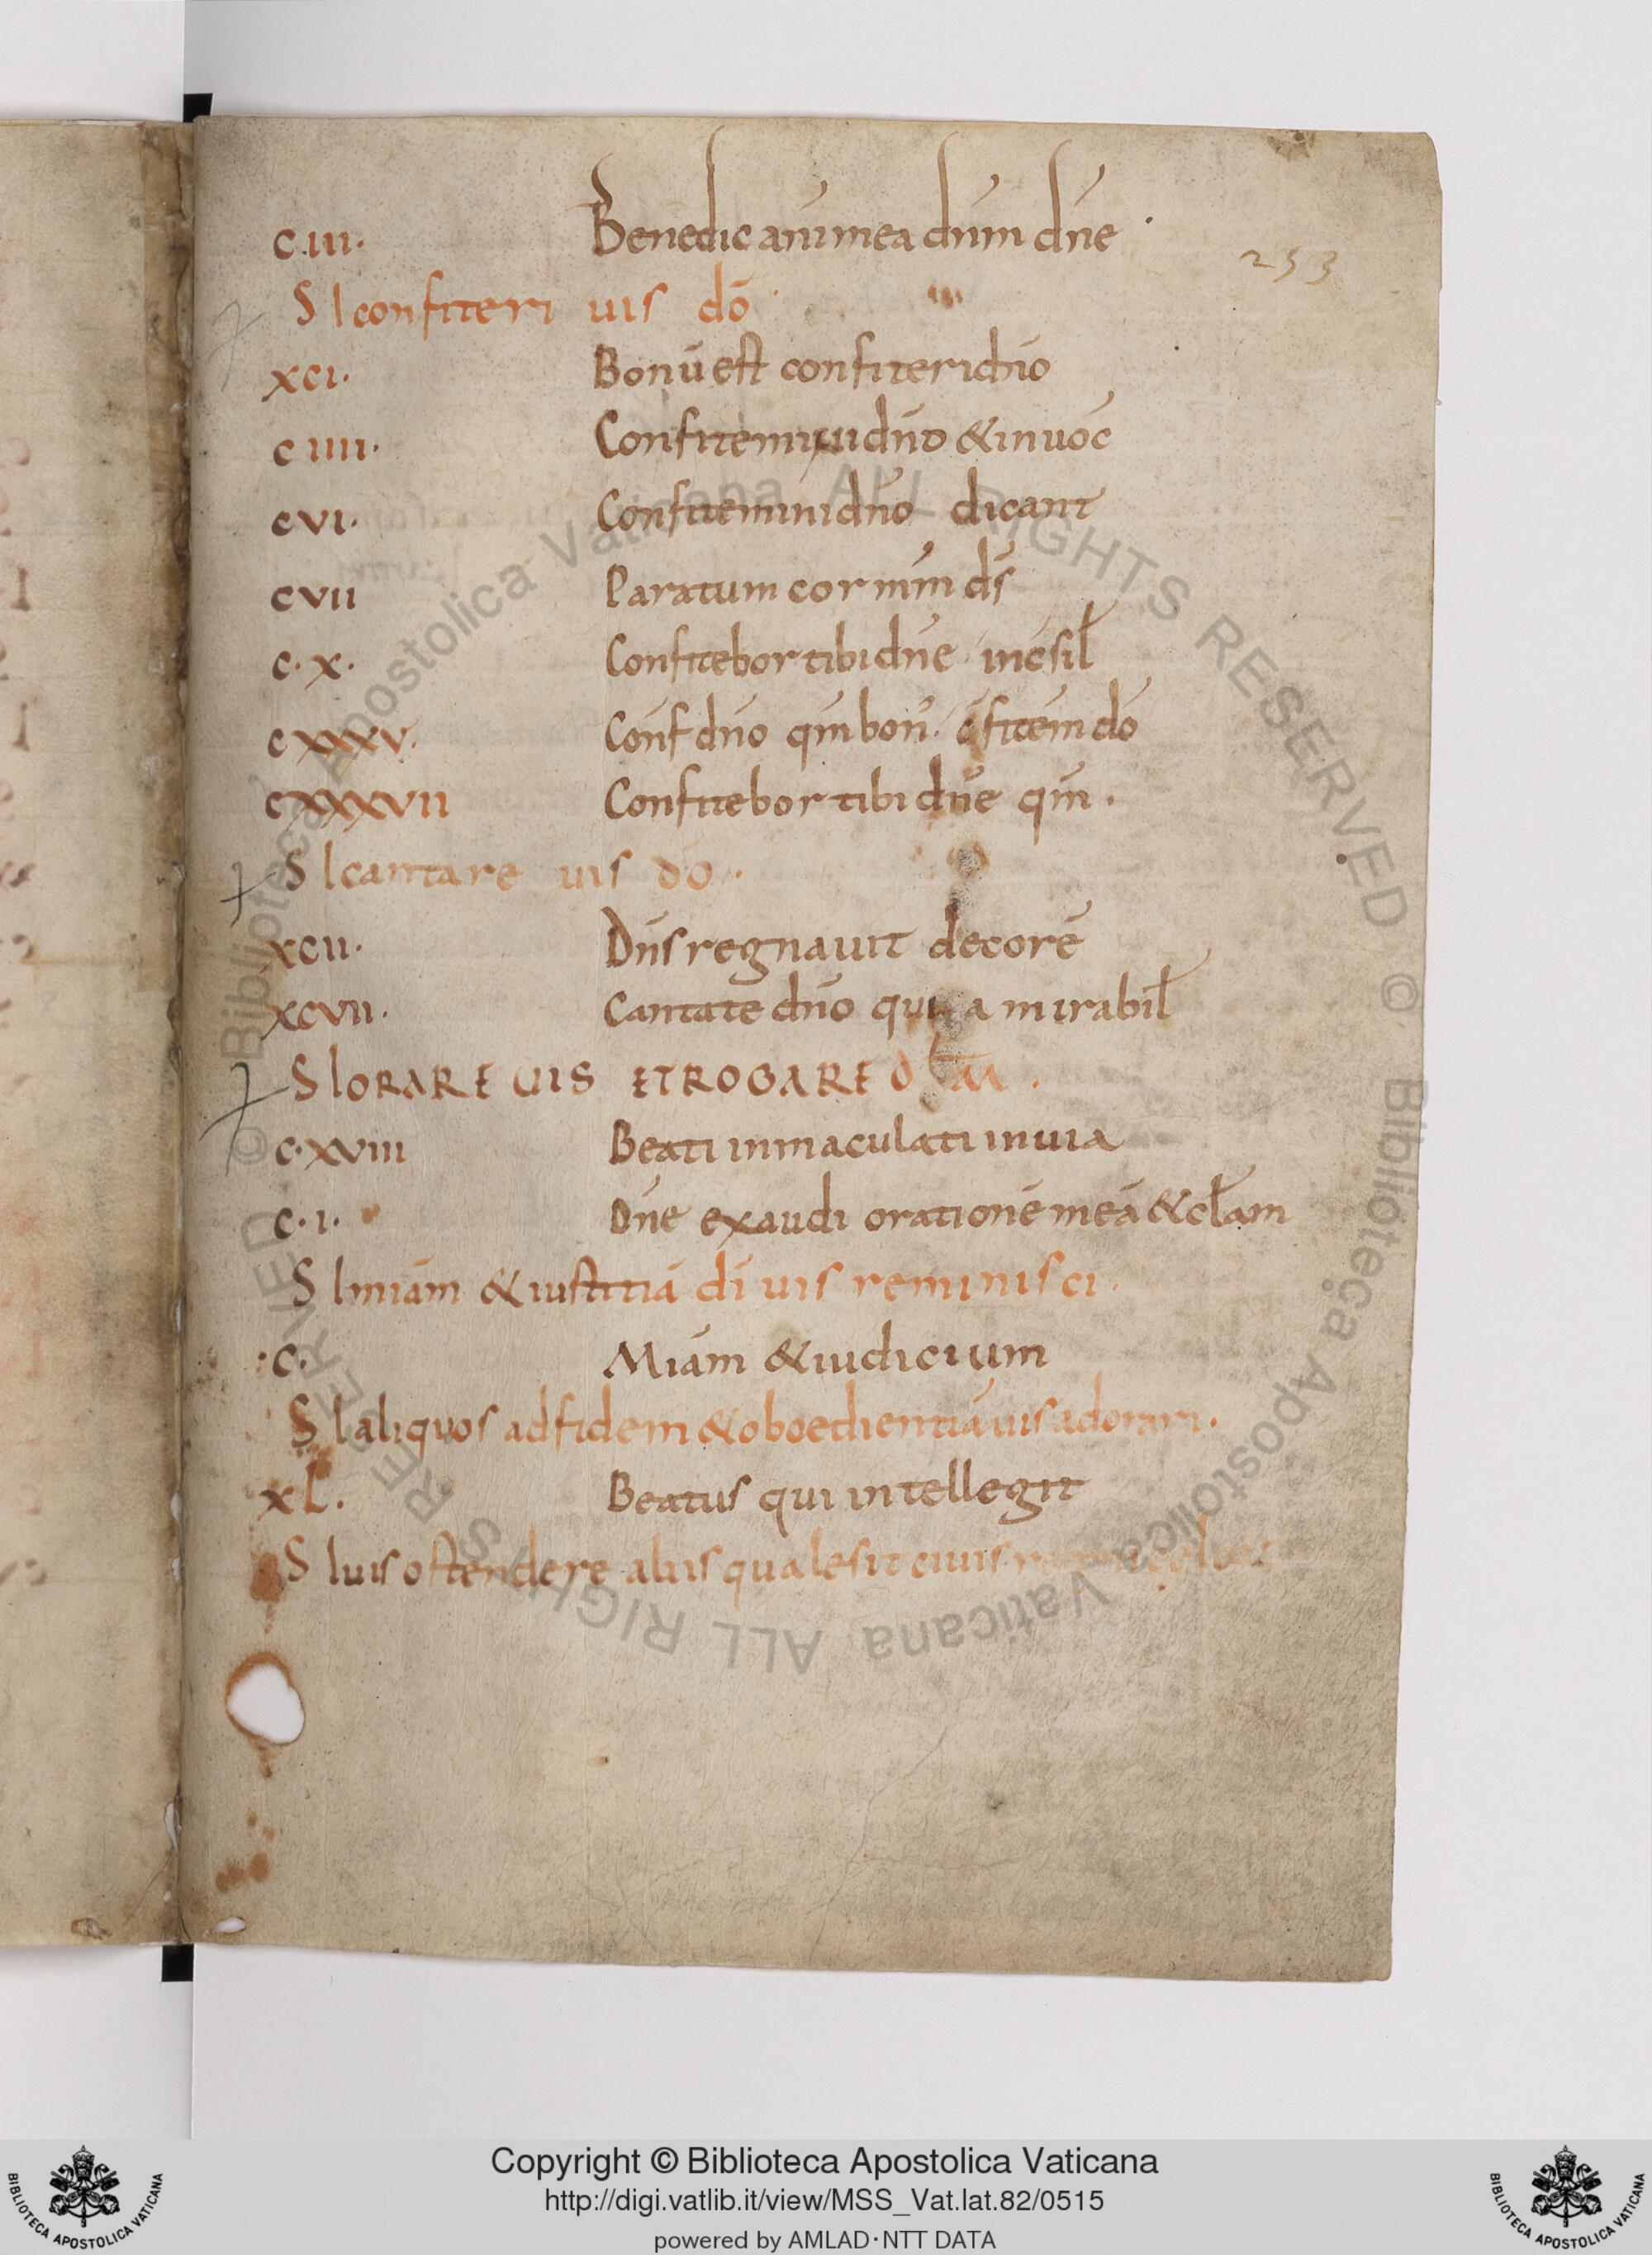 c.iii. Benedic anima mea dnm dne
253
SI confiteri uis dō
xci. Bonū est confiteri dno
c iiii. Confitemini dno & inuoc
cvi. Confitemini dno dicant
cvii Paratum cor mm ds
c.x. Confitebor tibi dne in csil
cxxxv. Conf dno qm bon cfitem do
cxxxvii Confitebor tibi dne qm.
SI cantare uis do.
xcii. Dns regnauit decore
xcvii. Cantate dno quia mirabil
SI ORARE UIS ET ROGARE
c.xviii Beati inmaculati in uia
c.i. Dne exaudi orationē meā & clam
SI miam & iustitiā di uis reminisci.
c. Miam & iudicium
SI aliquos ad fidem & oboedientiā uis
xL. Beatus qui intellegit
SI uis ostendere aliis quale sit
Copyright © Biblioteca Apostolica Vaticana
http://digi.vatlib.it/view/MSS_Vat.lat.82/0515
powered by AMLAD·NTT DATA
BIBLIOTECA APOSTOLICA VATICANA
BIBLIOTECA APOSTOLICA VATICANA
© Biblioteca Apostolica Vaticana ALL RIGHTS RESERVED © Biblioteca Apostolica Vaticana ALL RIGHTS RESERVED